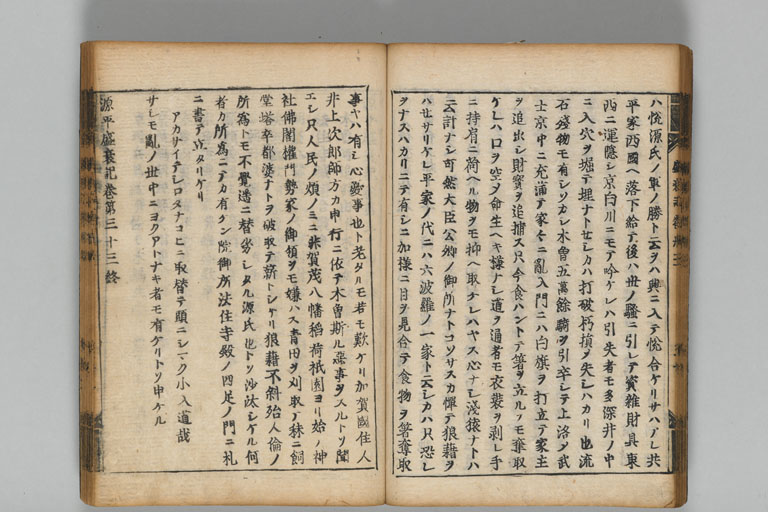 ハ悦源氏ノ軍ノ勝ト云ヲハ興ニ入テ悦合ケリサハアレ共
平家西國ヘ落下給テ後ハ世ノ騒ニ引レテ資雜財具東
西ニ運隱シ京白川ニモテ吟ケレハ引失者モ多深井ノ中
ニ入穴ヲ堀テ埋ナトセシカハ打破朽損ヲ失シハカリ也流
石殘物モ有シソカシ木曽五萬餘騎ヲ引卒シテ上洛メ武
士京中ニ充滿テ家々ニ亂入門ニハ白旗ヲ打立テ家主
ヲ追出シ財寳ヲ追捕ス只今食ハントテ箸ヲ立ルヲモ奪取
ケレハロヲ空メ命生ヘキ様ナシ道ヲ通者モ衣裝ヲ剥レ手
ニ持肩ニ荷ヘル物ヲモ抑ヘ取ケレハヤス心ナシ淺猿ナトハ
云計ナシ可然大臣公卿ノ御所ナトコソサスカ憚テ狼藉ヲ
ハセサリケレ平家ノ代ニハ六波羅ノ一家ト云シカハ只恐レ
ヲナスハカリニテ有シニ加様ニ目ヲ見合テ食物ヲ箸奪取
事ヤハ有シ心憂事也ト老タルモ若モ歎ケリ加賀國住人
井上次郎師方カ申行ニ依テ木曽斯ル惡事ヲスルトソ聞
エシ只人民ノ煩ノミニ非賀茂八幡稲荷祇園ヨリ始ノ神
社佛閣權門勢家ノ御領ヲモ嫌ハス青田ヲ刈取テ秣ニ飼
堂塔卒都婆ナトヲ破取テ薪トシケリ狼藉不斜殆人倫ノ
所爲トモ不覺遙ニ替劣シタル源氏也トソ沙汰シケル何
者カ所爲ニテカ有ケン院御所法住寺殿ノ四足ノ門ニ札
ニ書テ立タリケリ
アカサイテシロタナコヒニ取替テ頭ニシマク小入道哉
サシモ亂ノ世中ニヨクアトナキ者モ有ケリトソ申ケル
源平盛衰記卷第三十三終